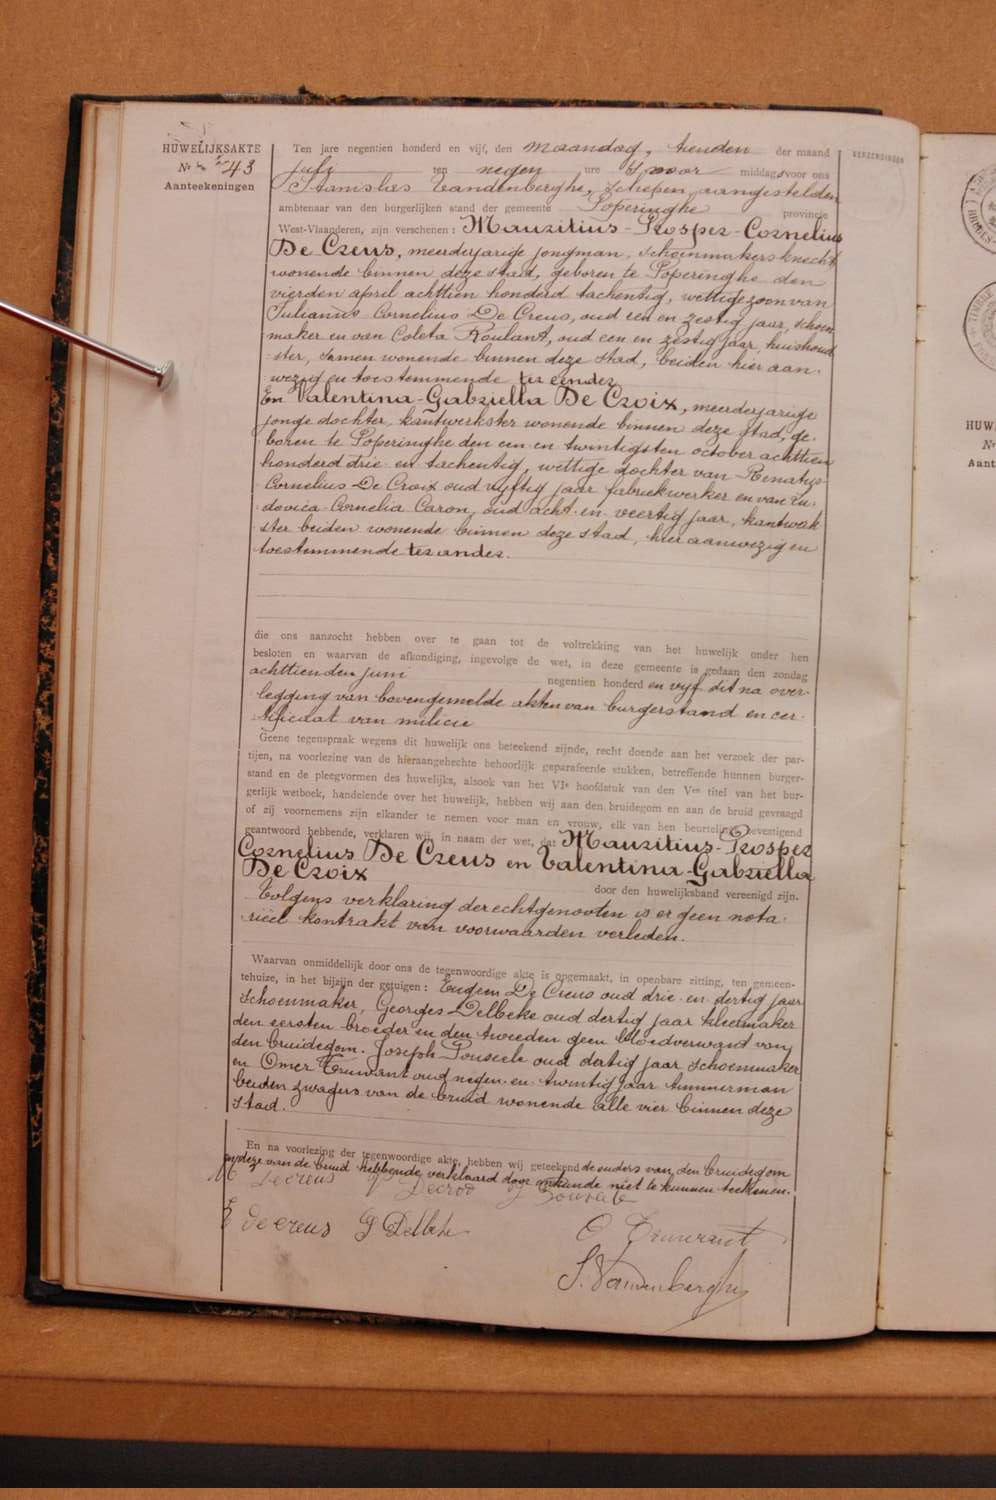 HUWELIJKSAKTE
Nr 43
Aanteekeningen
VERZENDINGEN
Ten jare negentien honderd en vijf, den maandag, tienden der maand
juli ten negen ure voor middags voor ons
Stanislas Vandenberghe, Schepen aangestelden
ambtenaar van den burgerlijken stand der gemeente Poperinghe provincie
West-Vlaanderen, zijn verschenen : Mauritius-Prosper-Cornelius
De Creus, meerderjarige jongman, schoenmakersknecht
wonende binnen deze stad, geboren te Poperinghe den
vierden april achttien honderd tachentig, wettige zoon van
Julianus Cornelius De Creus, oud een en zestig jaar, schoen-
maker en van Coleta Roulant, oud een en zestig jaar, huishoud
-ster, samen wonende binnen deze stad, beiden hier aan-
wezig en toestemmende ter eender
En Valentina-Gabriella De Croix, meerderjarige
jonge dochter, kantwerkster wonende binnen deze stad, ge-
boren te Poperinghe den een en twintigsten october achttien
honderd drie en tachentig, wettige dochter van Renatus-
Cornelius De Croix oud vijftig jaar fabriekwerker en van Lu-
dovica Cornelia Caron, oud acht en veertig jaar, kantwerk
-ster beiden wonende binnen deze stad, hier aanwezig en
toestemmende ter ander.
die ons aanzocht hebben over te gaan tot de voltrekking van het huwelijk onder hen
besloten en waarvan de afkondiging, ingevolge de wet, in deze gemeente is gedaan den zondag
achttienden juni negentien honderd en vijf dit na over-
legging van bovengemelde akten van burgerstand en cer-
tificaat van milicie
Geene tegenspraak wegens dit huwelijk ons beteekend zijnde, recht doende aan het verzoek der par-
tijen, na voorlezing van de hieraangehechte behoorlijk geparafeerde stukken, betreffende hunnen burger-
stand en de pleegvormen des huwelijks, alsook van het VIe hoofdstuk van den Ven titel van het bur-
gerlijk wetboek, handelende over het huwelijk, hebben wij aan den bruidegom en aan de bruid gevraagd
of zij voornemens zijn elkander te nemen voor man en vrouw, elk van hen beurtelings bevestigend
geantwoord hebbende, verklaren wij, in naam der wet, dat Mauritius-Prosper
Cornelius De Creus en Valentina-Gabriella
De Croix door den huwelijksband vereenigd zijn.
Volgens verklaring der echtgenooten is er geen nota-
rieel kontrakt van voorwaarden verleden.
Waarvan onmiddellijk door ons de tegenwoordige akte is opgemaakt, in openbare zitting, ten gemeen-
tehuize, in het bijzijn der getuigen : Eugeen De Creus oud drie en dertig jaar
schoenmaker, Georges Delbeke oud dertig jaar kleermaker
den eersten broeder en den tweeden geen bloedverwand van
den bruidegom. Joseph Pouseele oud dertig jaar schoenmaker
en Omer Truwant oud negen en twintig jaar timmerman
beiden zwagers van de bruid wonende alle vier binnen deze
stad.
En na voorlezing der tegenwoordige akte, hebben wij geteekend de ouders van den bruidegom
en deze van de bruid hebbende verklaard door onkunde niet te kunnen teekenen.
M Decreus
E decreus G Delbeke
S. Vandenberghe